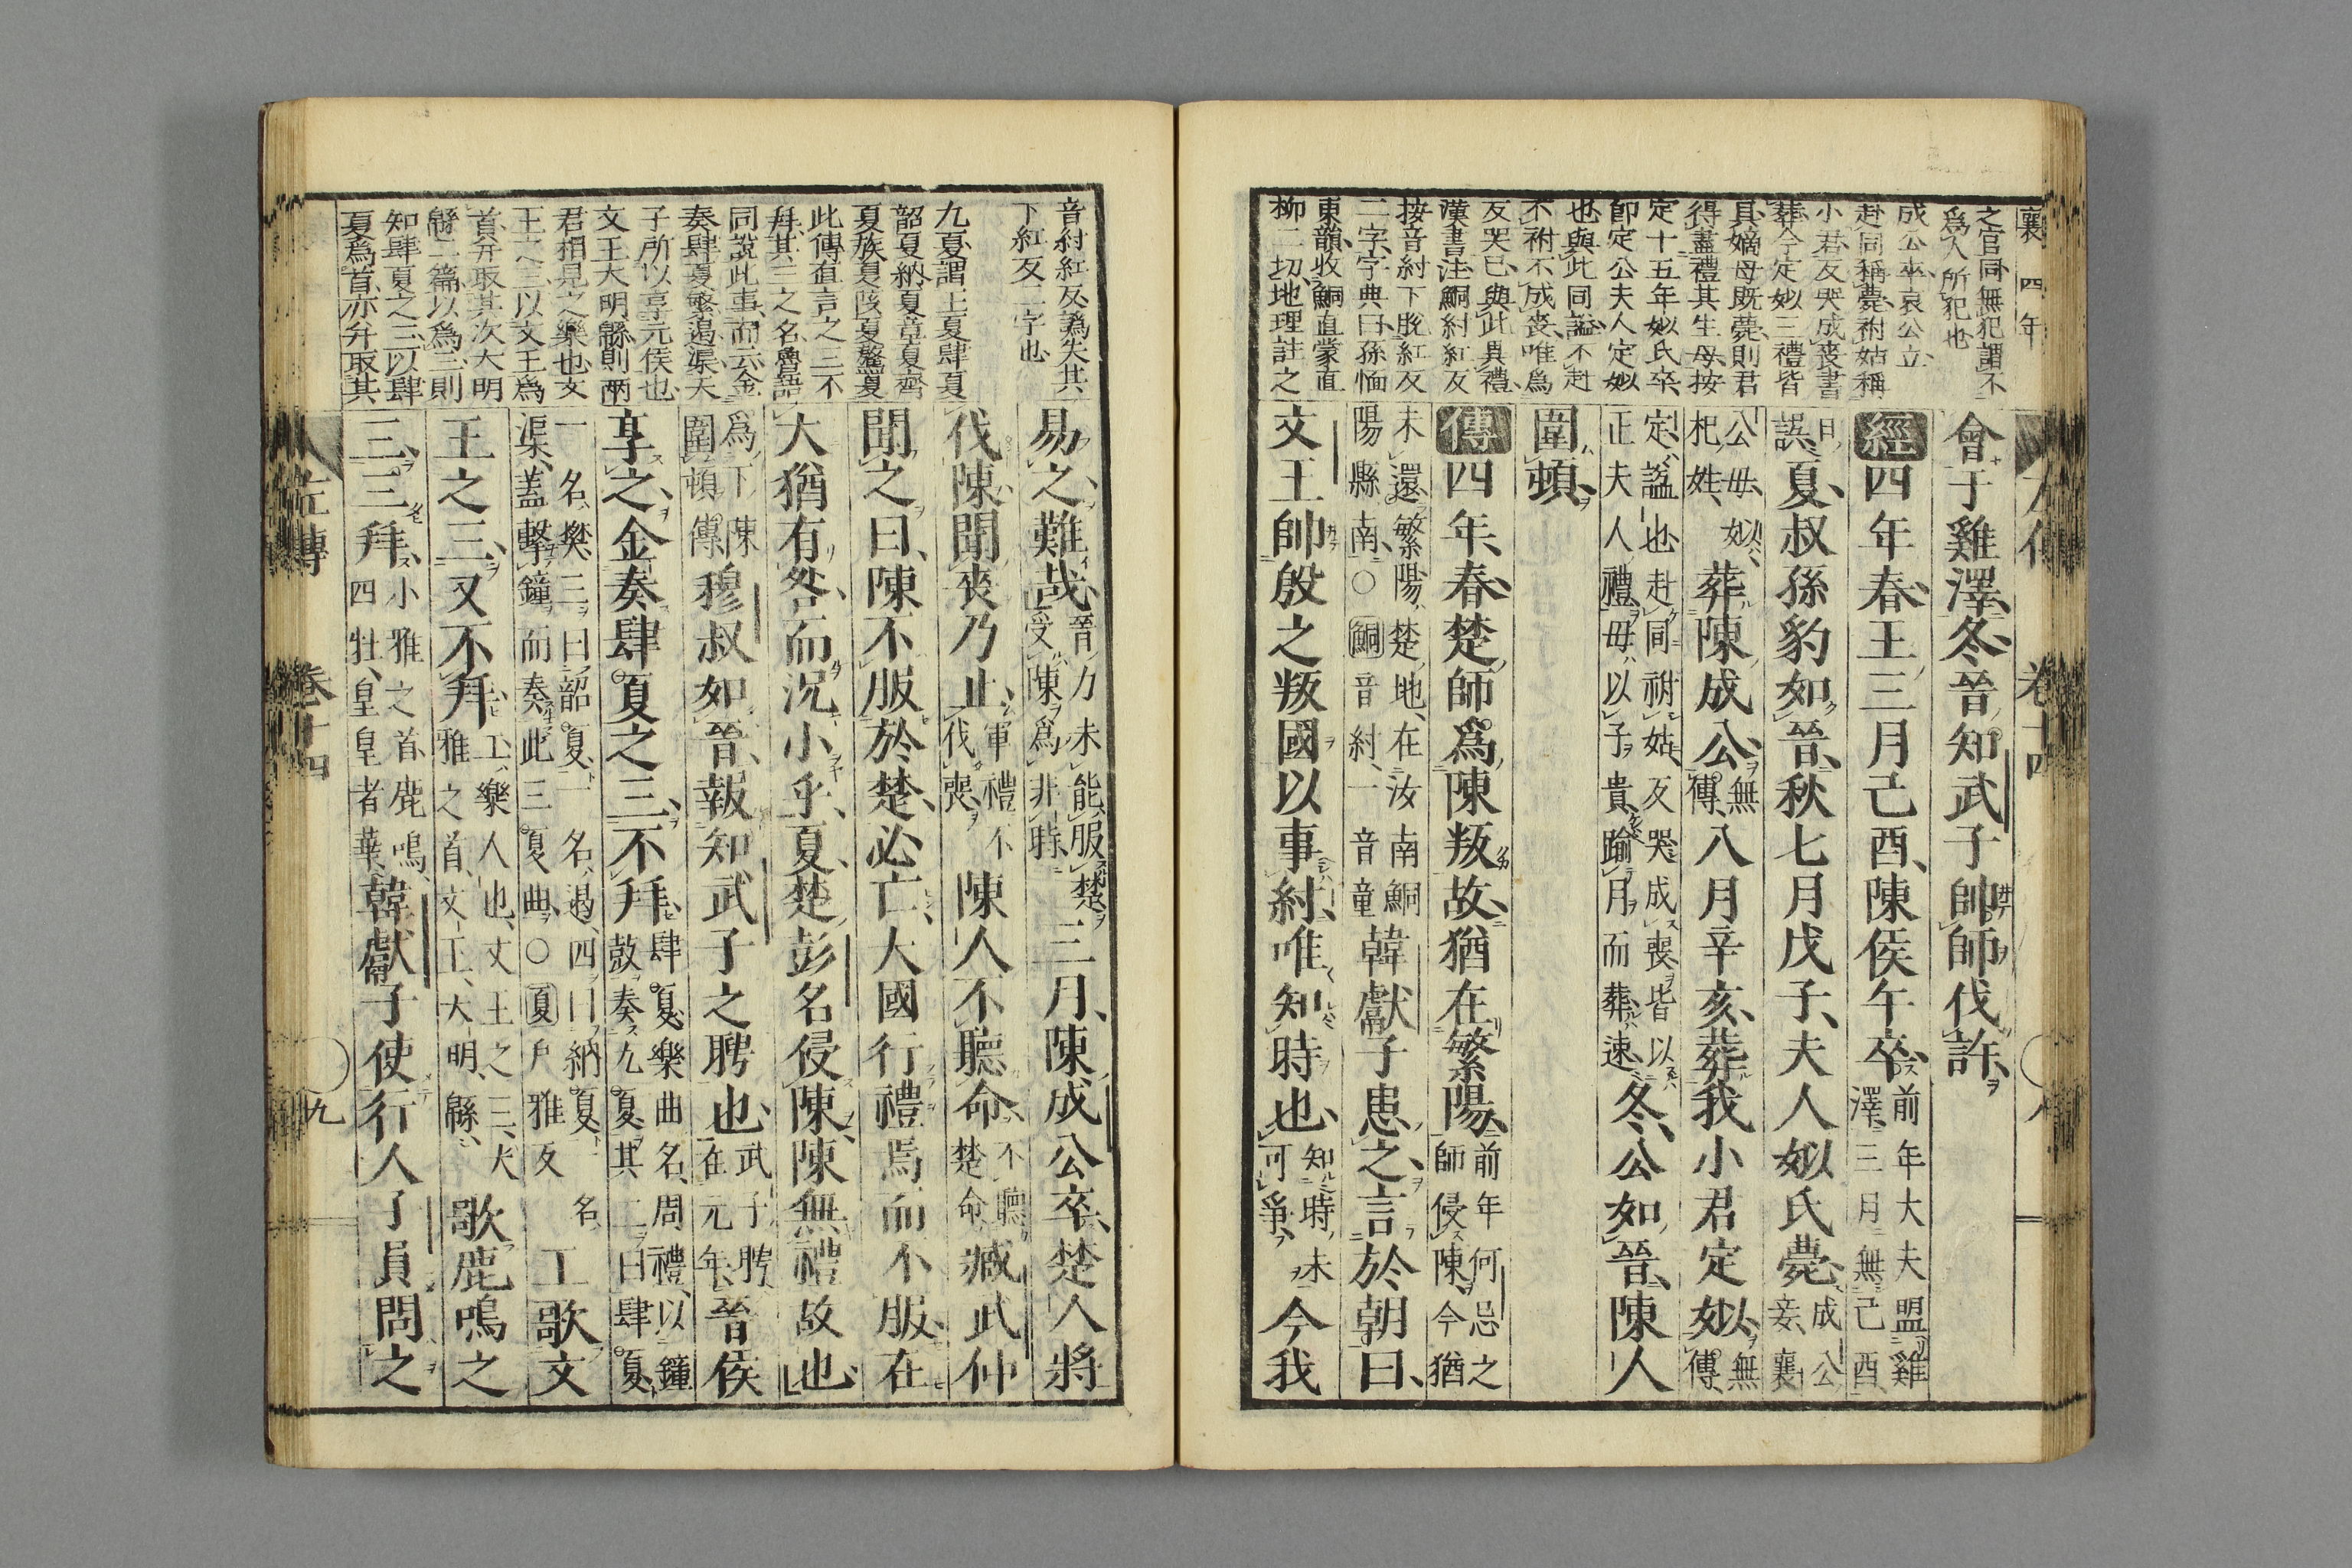 襄 四年
之官同無犯謂不
爲人所犯也
成公卒哀公立
赴同稱薨祔姑稱
小君反哭成喪書
葬今定姒三禮皆
具嫡母既薨則君
得盡禮其生母按
定十五年姒氏卒
即定公夫人定姒
也與此同謚不赴
不祔不成喪唯爲
反哭已與此異禮
漢書注鮦紂紅反
按音紂下脫紅反
二字字典曰孫愐
東韻收鮦直蒙直
柳二切地理註之
會于雞澤冬晉知武子帥師伐許
經四年春王三月己酉陳侯午卒前年大夫盟雞
澤三月無己酉
日誤夏叔孫豹如晉秋七月戊子夫人姒氏薨成公
妾襄
公母姒
杞姓葬陳成公無
傳八月辛亥葬我小君定姒無
傳
定謚也赴同祔姑反哭成喪皆以
正夫人禮母以子貴踰月而葬速冬公如晉陳人
圍頓
傳四年春楚師爲陳叛故猶在繁陽前年何忌之
師侵陳今猶
未還繁陽楚地在汝南鮦
陽縣南○鮦音紂一音童韓獻子患之言於朝曰
文王帥殷之叛國以事紂唯知時也知時未
可爭今我
卷十四
音紂紅反譌失其
下紅反二字也
九夏謂王夏肆夏
韶夏納夏章夏齊
夏族夏陔夏鷔夏
此傳直言之三不
拜其三之名魯語
同說此事而云金
奏肆夏繁遏渠天
子所以享元侯也
文王大明緜則兩
君相見之樂也文
王之三以文王爲
首并取其次大明
緜二篇以爲三則
知肆夏之三以肆
夏爲首亦并取其
易之難哉晉力未能服楚
受陳爲非時三月陳成公卒楚人將
伐陳聞喪乃止軍禮不
伐喪陳人不聽命不聽
楚命臧武仲
聞之曰陳不服於楚必亡大國行禮焉而不服在
大猶有咎而況小乎夏楚彭名侵陳陳無禮故也
爲下陳
圍頓傳穆叔如晉報知武子之聘也武子聘
在元年晉侯
享之金奏肆夏之三不拜肆夏樂曲名周禮以鐘
鼓奏九夏其二曰肆夏
一名樊三曰韶夏一名遏四曰納夏一名
渠蓋擊鐘而奏此三夏曲○夏戶雅反工歌文
王之三又不拜工樂人也文王之三大
雅之首文王大明緜歌鹿鳴之
三三拜小雅之首鹿鳴
四牡皇皇者華韓獻子使行人子員問之
左傳 卷十四 九